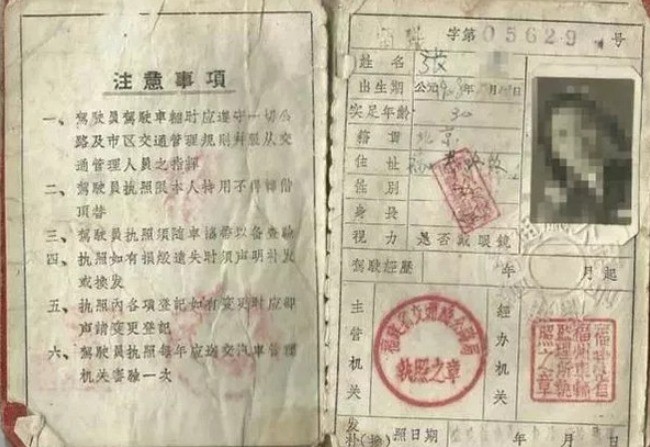 注意事項
一、駕駛員駕駛車輛时应遵守一切公
路及市区交通管理規則并服从交
通管理人员之指揮
二、駕駛員执照限本人持用不得轉借
頂替
三、駕駛員执照須随車携带以备查驗
四、执照如有損毀遺失时須声明补发
或換发
五、执照內各項登記如有变更时应即
声請变更登記
六、駕駛員执照每年应送交汽車管理
机关審驗一次
字第05629号
姓名 張
出生期 公元19 年 月 日
实足年龄 30
籍貫 北京
住址
性別
身長
視力 是否戴眼鏡
駕駛經歷 年 月起
主管机关
經办机关
执照之章
补(換)照日期 年 月